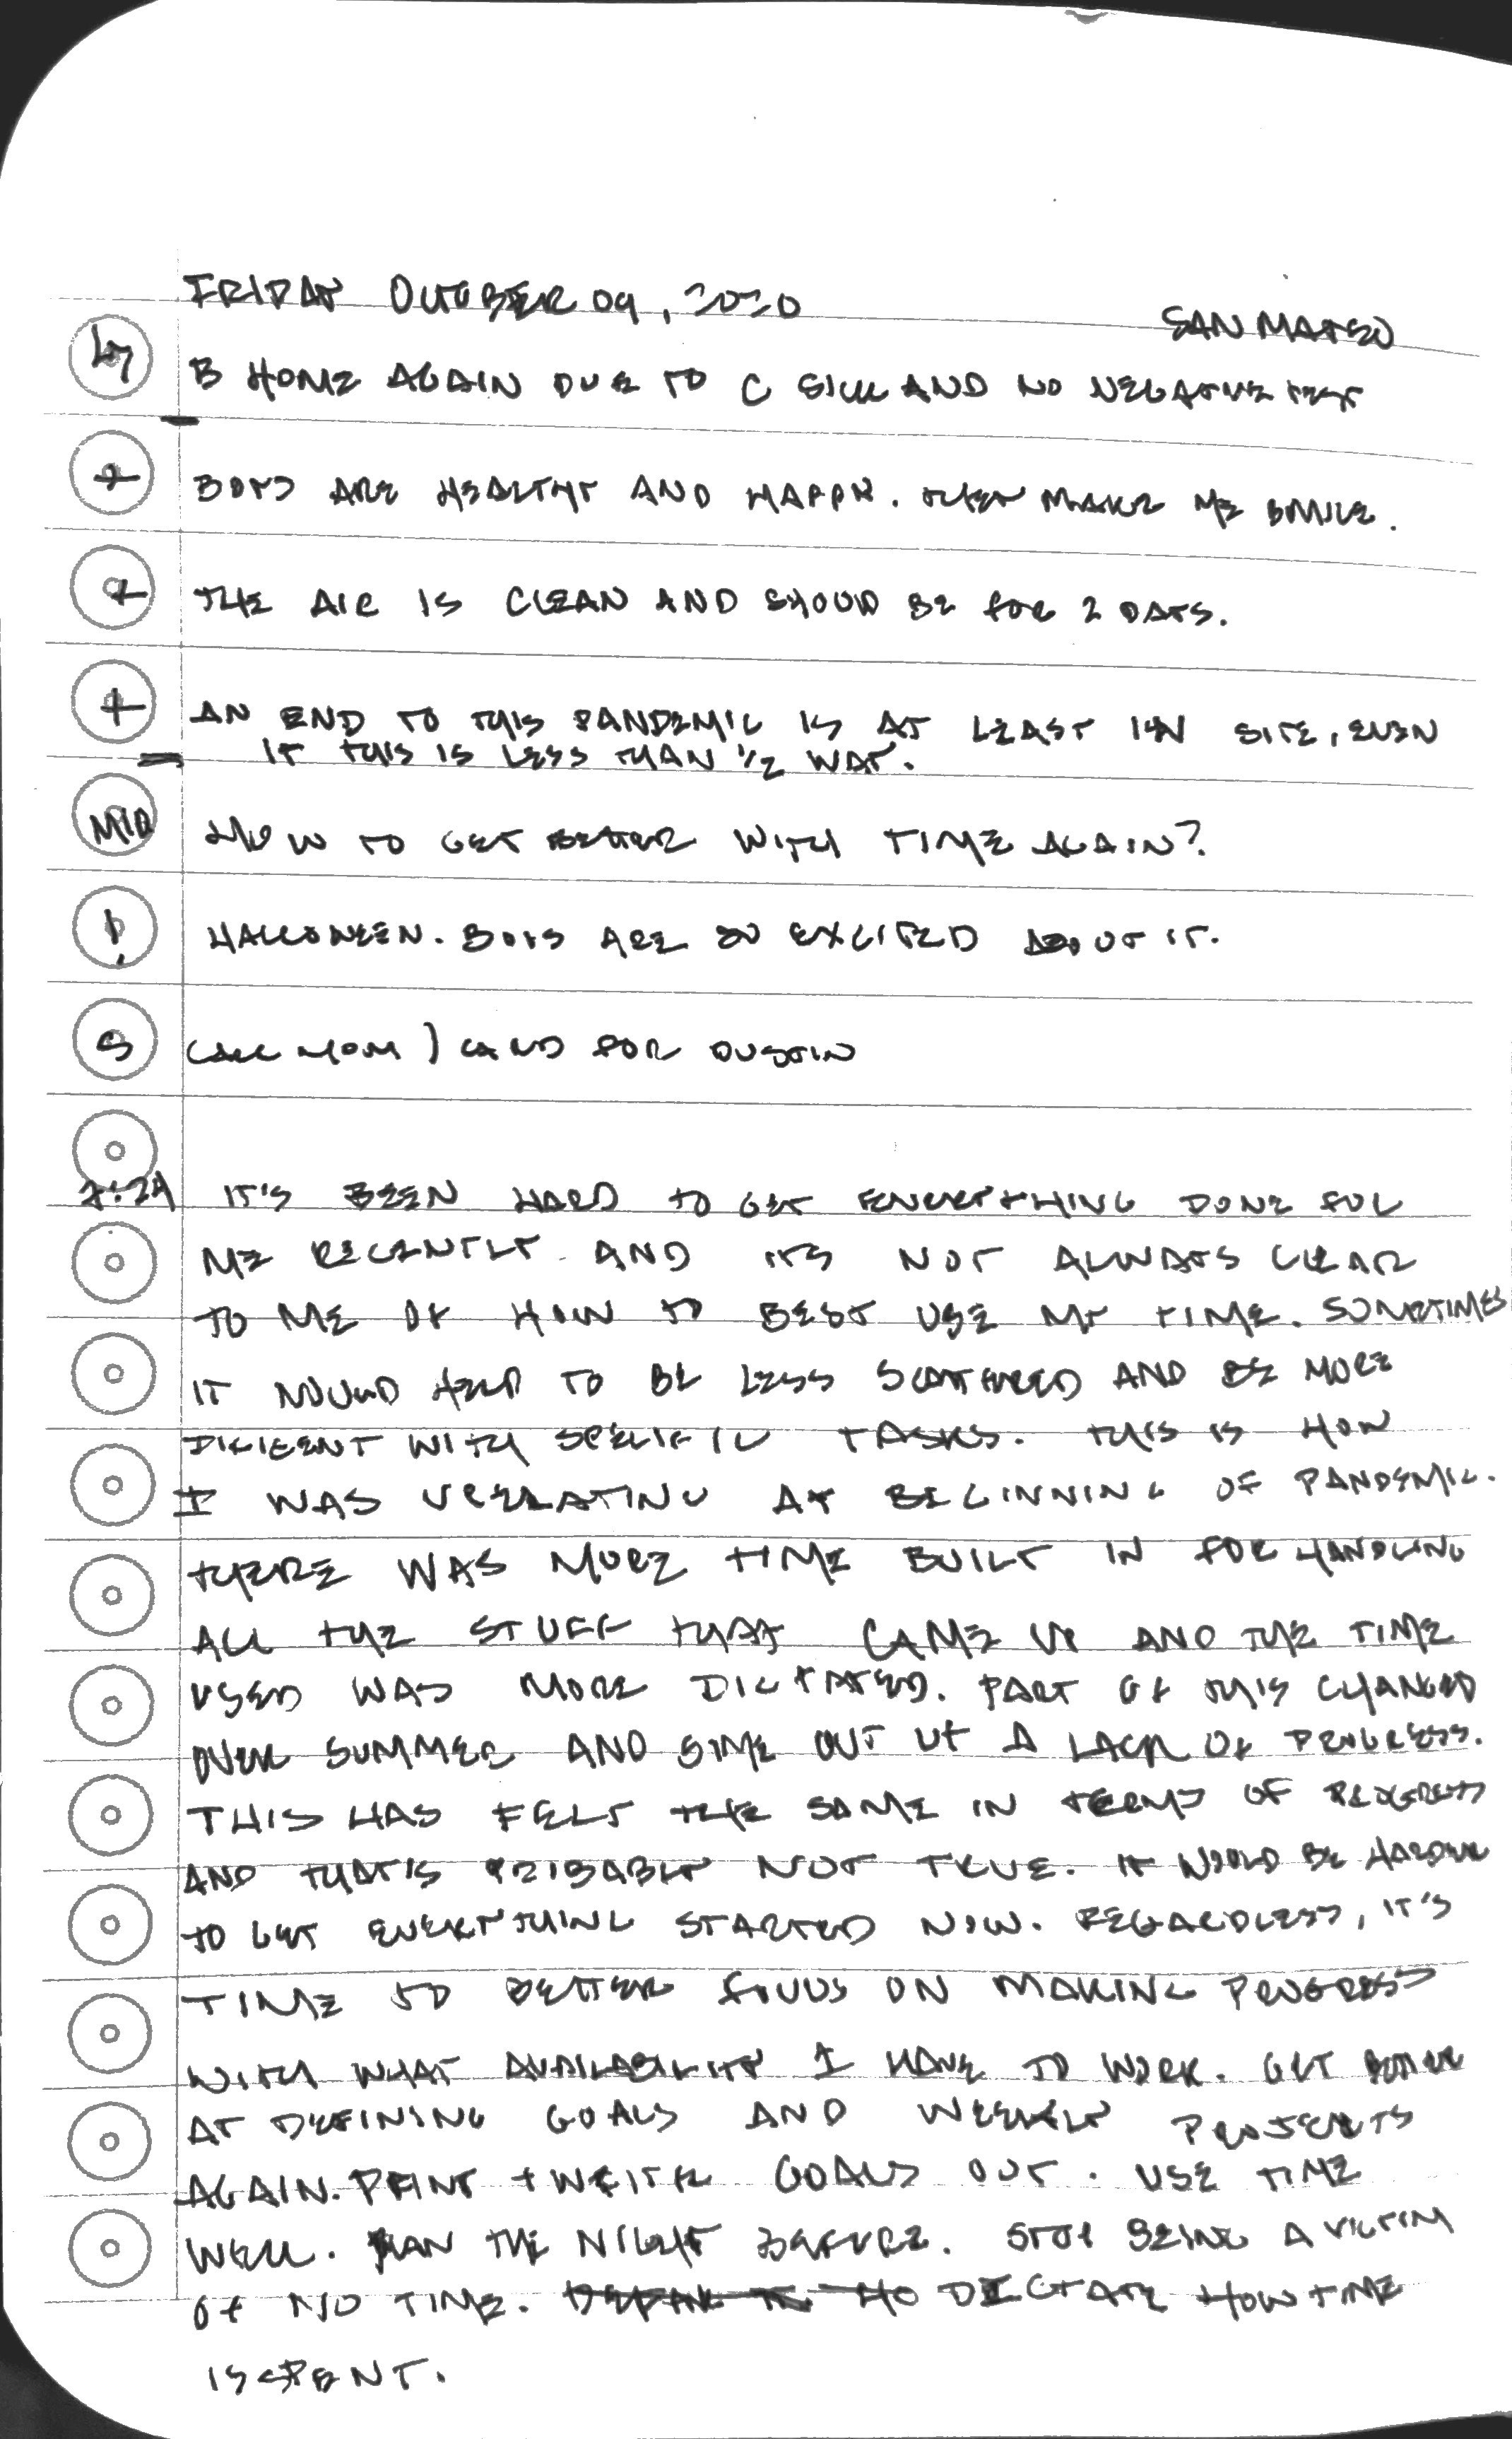 FRIDAY OCTOBER 09, 2020
SAN MATEO
LY B HOME AGAIN DUE TO C SICK AND NO NEGATIVE TEST
+ BOYS ARE HEALTHY AND HAPPY. THEY MAKE ME SMILE.
+ THE AIR IS CLEAN AND SHOULD BE FOR 2 DAYS.
+ AN END TO THIS PANDEMIC IS AT LEAST IN SITE, EVEN
IF THIS IS LESS THAN 1/2 WAY.
MIQ HOW TO GET BETTER WITH TIME AGAIN?
! HALLOWEEN. BOYS ARE SO EXCITED ABOUT IT.
S CALL MOM ) CARD FOR DUSTIN
7:24 IT'S BEEN HARD TO GET EVERYTHING DONE FOR
ME RECENTLY AND IT'S NOT ALWAYS CLEAR
TO ME OF HOW TO BEST USE MY TIME. SOMETIMES
IT WOULD HELP TO BE LESS SCATTERED AND BE MORE
DILIGENT WITH SPECIFIC TASKS. THIS IS HOW
I WAS OPERATING AT BEGINNING OF PANDEMIC.
THERE WAS MORE TIME BUILT IN FOR HANDLING
ALL THE STUFF THAT CAME UP AND THE TIME
USED WAS MORE DICTATED. PART OF THIS CHANGED
OVER SUMMER AND SOME OUT OF A LACK OF PROGRESS.
THIS HAS FELT THE SAME IN TERMS OF PROGRESS
AND THAT'S PROBABLY NOT TRUE. IT WOULD BE HARDER
TO GET EVERYTHING STARTED NOW. REGARDLESS, IT'S
TIME TO BETTER FOCUS ON MAKING PROGRESS
WITH WHAT AVAILABILITY I HAVE TO WORK. GET BETTER
AT DEFINING GOALS AND WEEKLY PROJECTS
AGAIN. PRINT + WRITE GOALS OUT. USE TIME
WELL. PLAN THE NIGHT BEFORE. STOP BEING A VICTIM
OF NO TIME. DICTATE HOW TIME
IS SPENT.